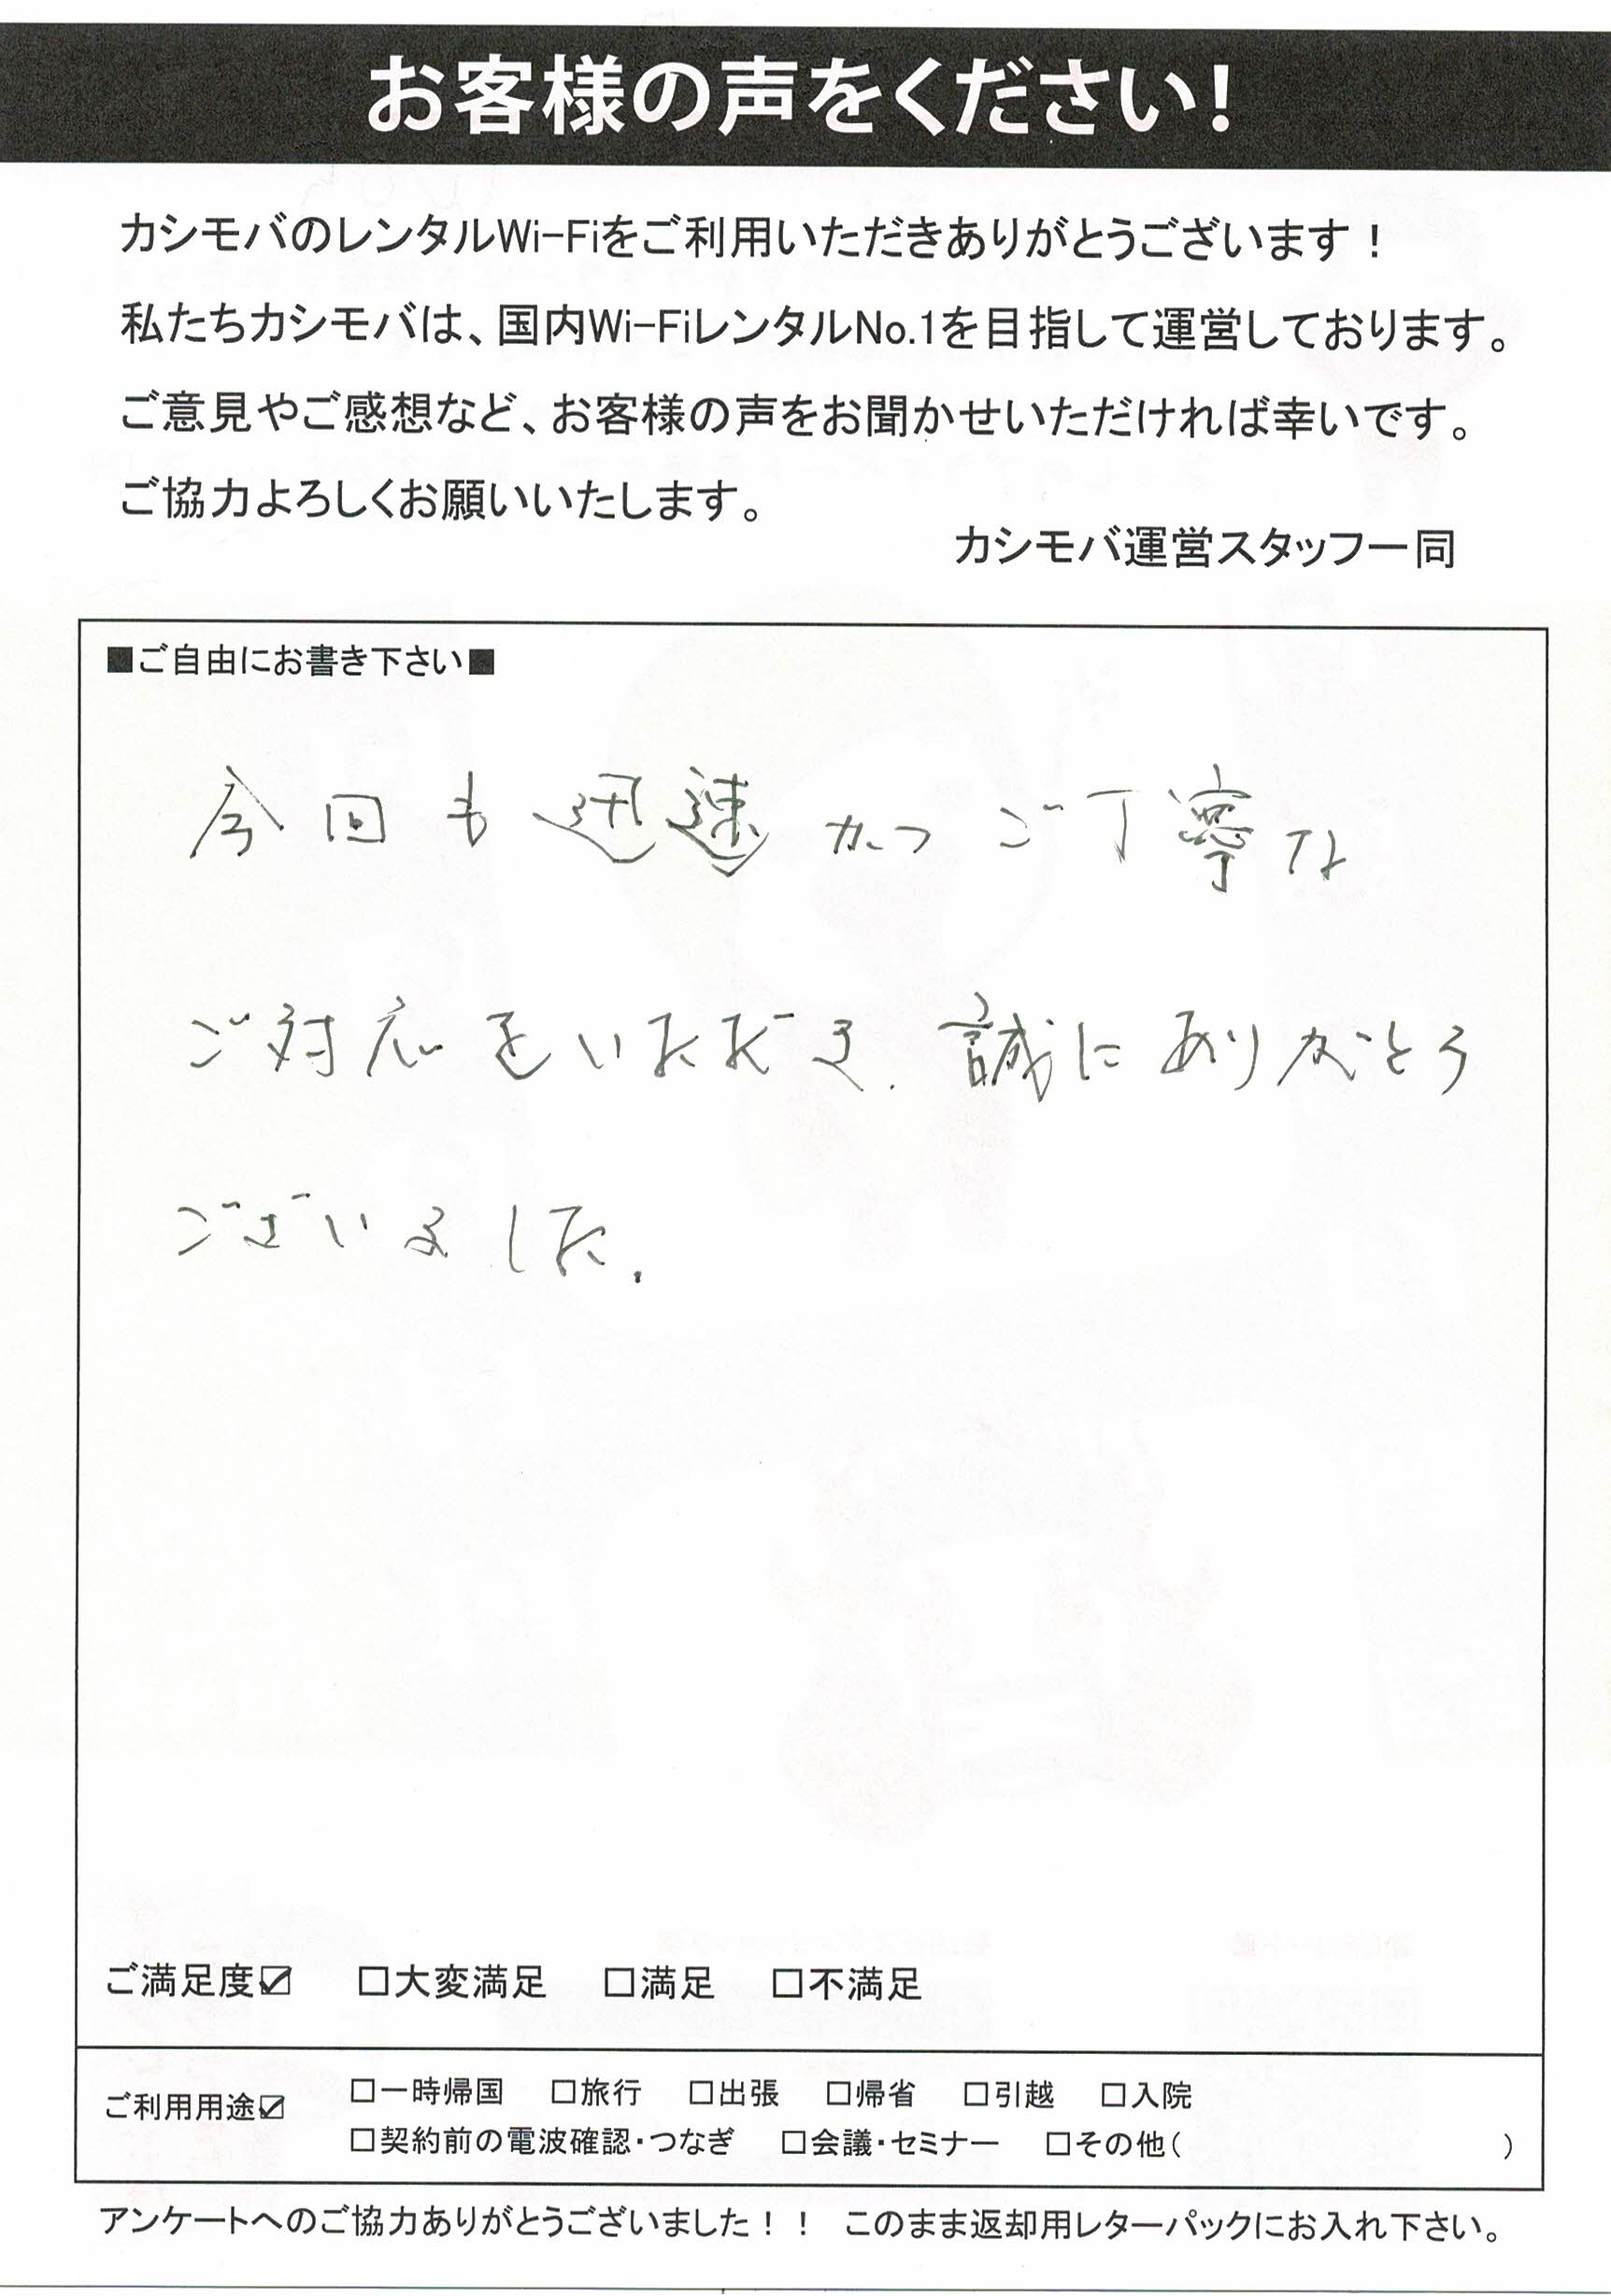 お客様の声をください！
カシモバのレンタルWi-Fiをご利用いただきありがとうございます！
私たちカシモバは、国内Wi-FiレンタルNo.1を目指して運営しております。
ご意見やご感想など、お客様の声をお聞かせいただければ幸いです。
ご協力よろしくお願いいたします。
カシモバ運営スタッフ一同
■ご自由にお書き下さい■
今回も迅速かつご丁寧な
ご対応をいただき、誠にありがとう
ございました。
ご満足度☑ □大変満足 □満足 □不満足
ご利用用途☑ □一時帰国 □旅行 □出張 □帰省 □引越 □入院
□契約前の電波確認・つなぎ □会議・セミナー □その他( )
アンケートへのご協力ありがとうございました！！ このまま返却用レターパックにお入れ下さい。